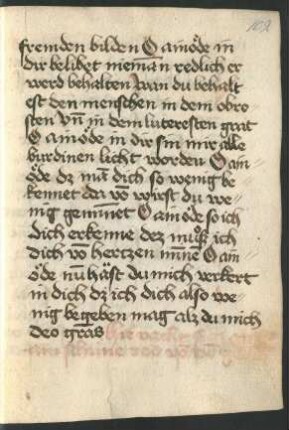 102
fremden bilden O ainöde in
dir belibet nieman redlich er
werd behalten wan du behalt
est den menschen in dem obro
sten vn̄ in dem lutersten grat
O ainöde in dir sin mir alle
burdinen licht worden O ain
öde dz ma̅ dich so wenig be
kennet dar vo̅ wirst du we
nig geminnet O ainöde so ich
dich erkenne dez muͦss ich
dich vo̅ hertzen minne̅ O ain
öde nu̅ häst du mich verkert
in dich dz ich dich also we
nig begeben mag alz du mich
deo gr̅as